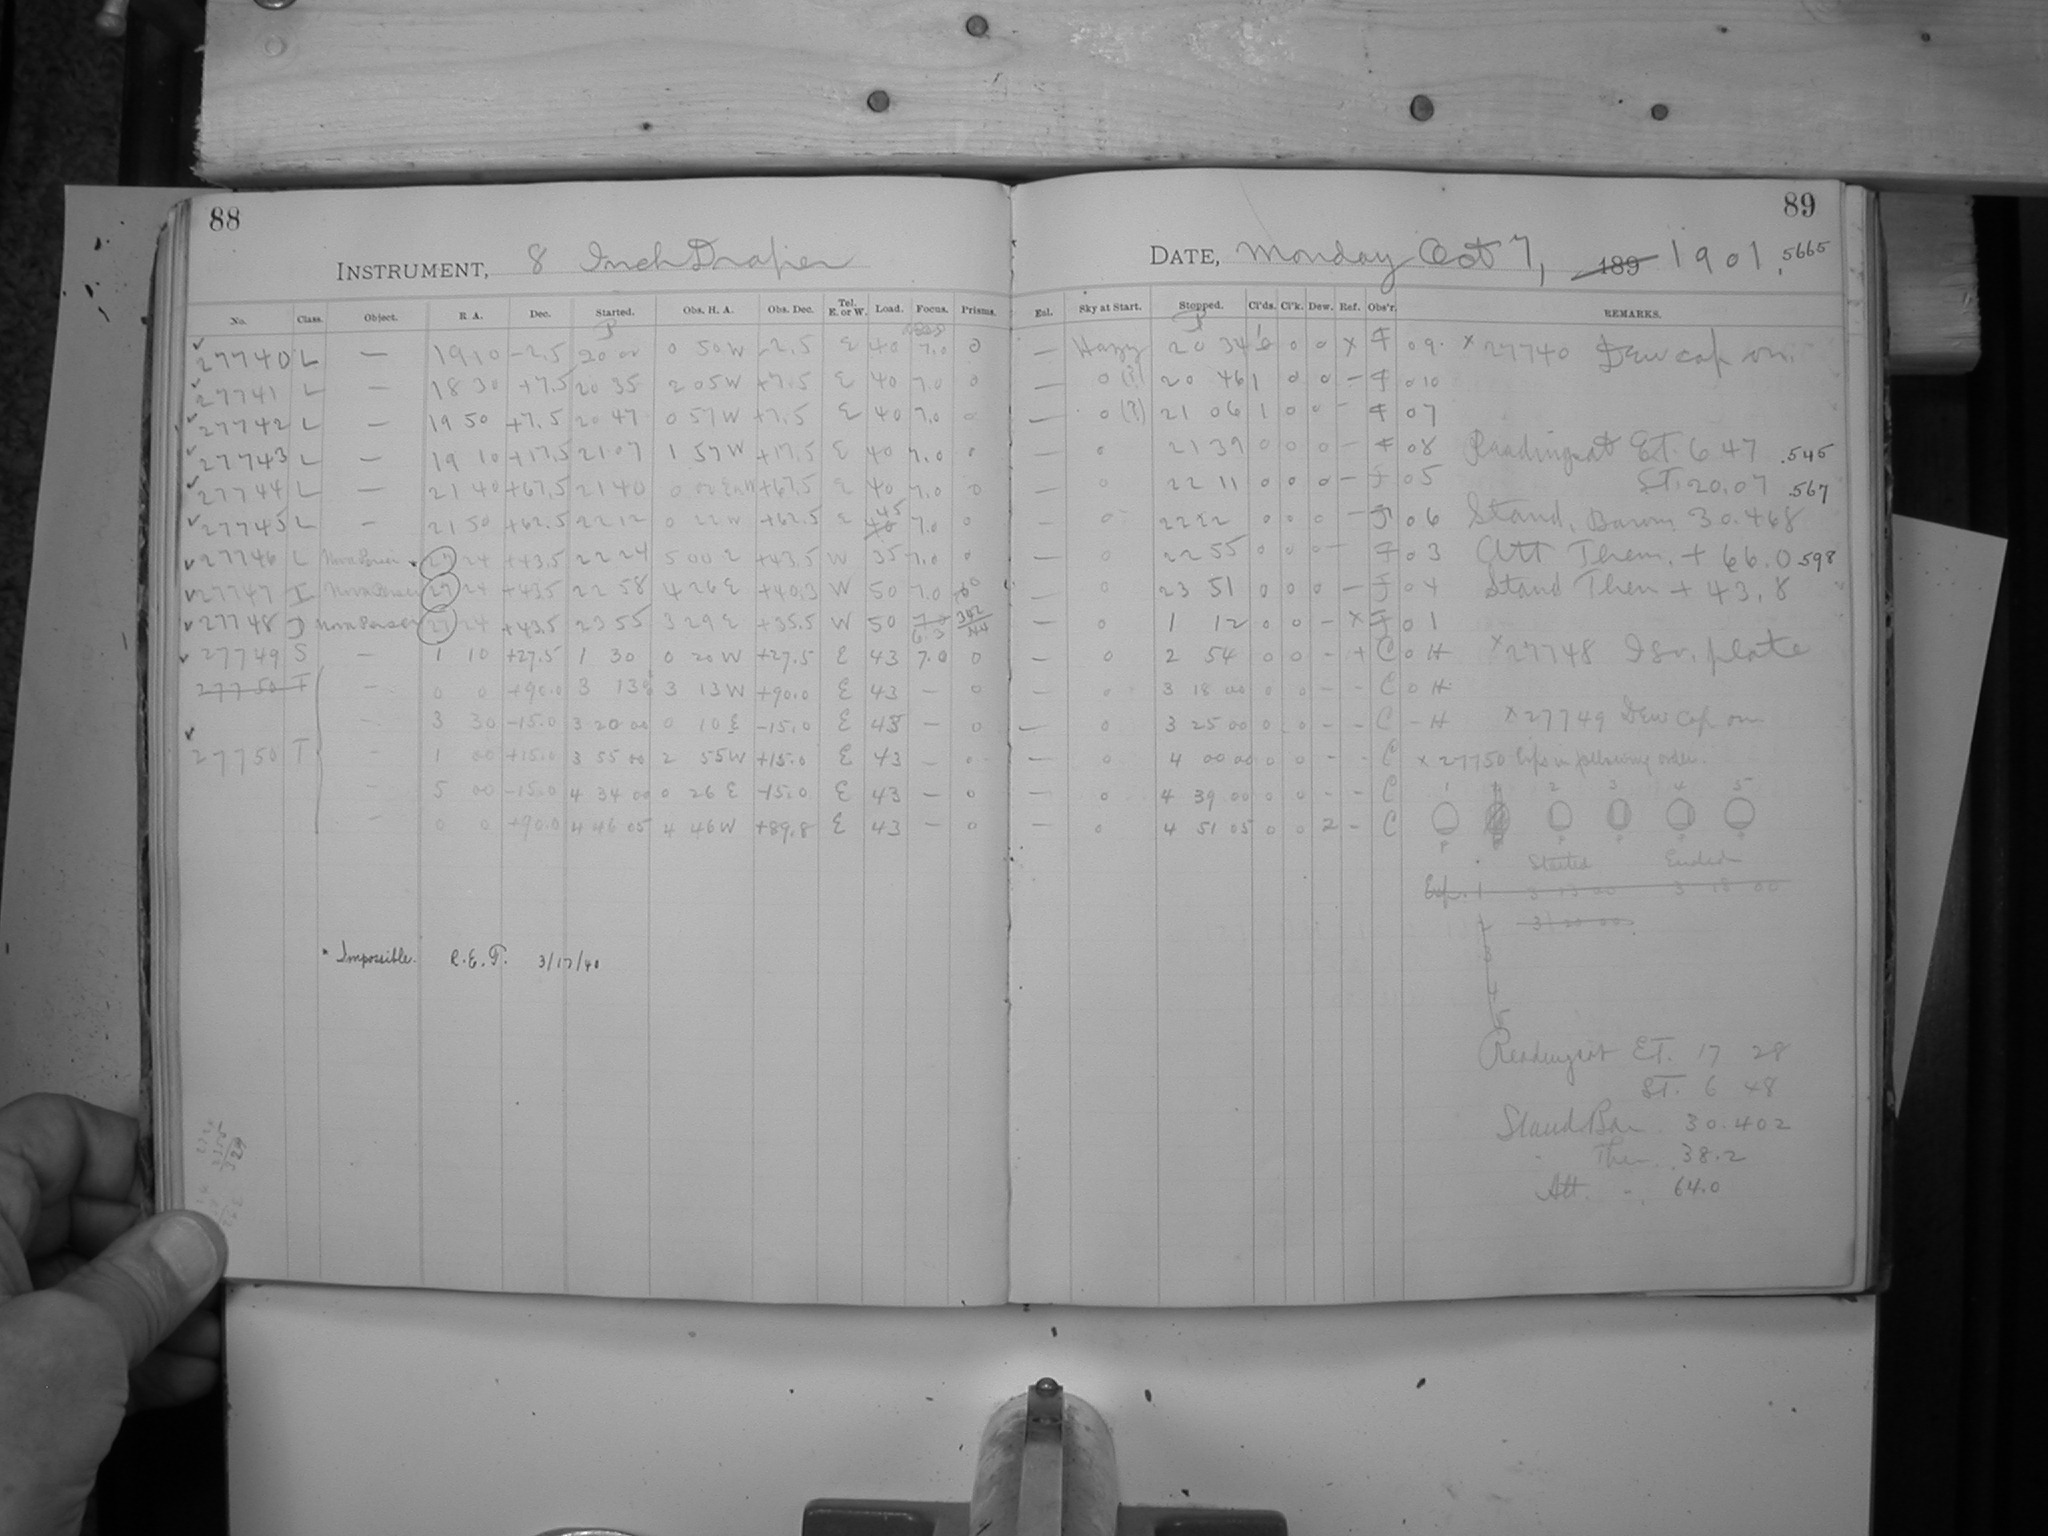 88
INSTRUMENT, 8 Inch Draper
No. Class. Object. R. A. Dec. Started. Obs. H. A. Obs. Dec. Tel. E. or W. Load. Focus. Prisms.
27740 L — 19 10 -2.5 20 00 0 50 W -2.5 E 40 7.0 0
27741 L — 18 30 +7.5 20 35 2 05 W +7.5 E 40 7.0 0
27742 L — 19 50 +7.5 20 47 0 57 W +7.5 E 40 7.0 0
27743 L — 19 10 +17.5 21 07 1 57 W +17.5 E 40 7.0 0
27744 L — 21 40 +67.5 21 40 0 00 +67.5 E 40 7.0 0
27745 L — 21 50 +62.5 22 12 0 22 W +62.5 E 45 40 7.0 0
27746 L Nova Persei * 27 24 +43.5 22 24 5 00 E +43.5 W 35 7.0 0
27747 I Nova Persei 27 24 +43.5 22 58 4 26 E +40.3 W 50 7.0
27748 J Nova Persei 27 24 +43.5 23 55 3 29 E +35.5 W 50 6.3
27749 S — 1 10 +27.5 1 30 0 20 W +27.5 E 43 7.0 0
27750 T — 0 0 +90.0 3 13 3 13 W +90.0 E 43 — 0
— 3 30 -15.0 3 20 00 0 10 E -15.0 E 43 — 0
27750 T — 1 00 +15.0 3 55 00 2 55 W +15.0 E 43 — 0
— 5 00 -15.0 4 34 00 0 26 E -15.0 E 43 — 0
— 0 0 +90.0 4 46 05 4 46 W +89.8 E 43 — 0
* Impossible. R.E.T. 3/17/40
89
DATE, Monday Oct 7, 189 1901.5665
Enl. Sky at Start. Stopped. Cl'ds. Cl'k. Dew. Ref. Obs'r. REMARKS.
— Hazy 20 34 0 0 x F 09. x 27740 Dew cap on.
— 0 (?) 20 46 1 0 0 — F 010
— 0 (?) 21 06 1 0 0 — F 07
— 0 21 39 0 0 0 — F 08 Readings at E.T. 6 47 .545
— 0 22 11 0 0 0 — F 05 S.T. 20.07 .567
— 0 22 22 0 0 0 — F 06 Stand. Barom. 30.468
— 0 22 55 0 0 0 — F 03 Att Them. + 66.0 .598
— 0 23 51 0 0 0 — F 04 Stand Them + 43.8
— 0 1 12 0 0 — x F 01
— 0 2 54 0 0 — + C 0 H x 27748 Iso. plate
— 0 3 18 00 0 0 — — C 0 H
— 0 3 25 00 0 0 — — C — H x 27749 Dew cap on
— 0 4 00 00 0 0 — — C x 27750 Exps in following order.
— 0 4 39 00 0 0 — — C 1 2 3 4 5
— 0 4 51 05 0 0 2 — C
Started Ended
Exp. 1 3 13 00 3 18 00
2 3 20 00
3
4
5
Readings at E.T. 17 28
S.T. 6 48
Stand. Bar 30.402
" Ther. 38.2
Att. " 64.0